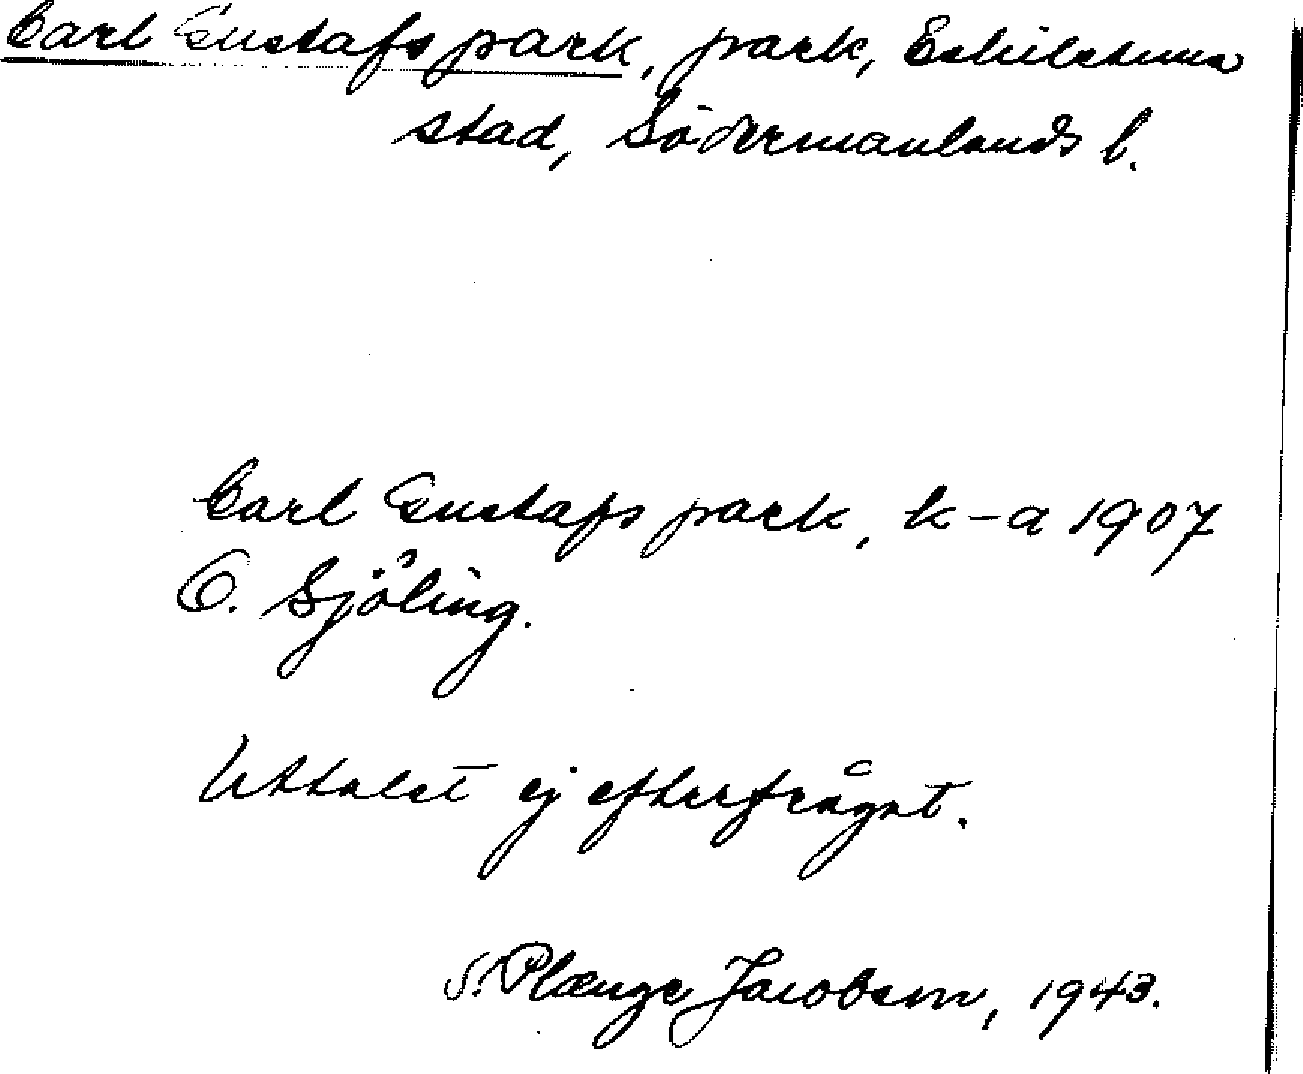 Carl Gustafs park, park, Eskilstuna
stad, Södermanlands l.
Carl Gustafs park, k-a 1907
O. Sjöling.
Uttalet ej efterfrågat.
S. Plænge Jacobson, 1943.